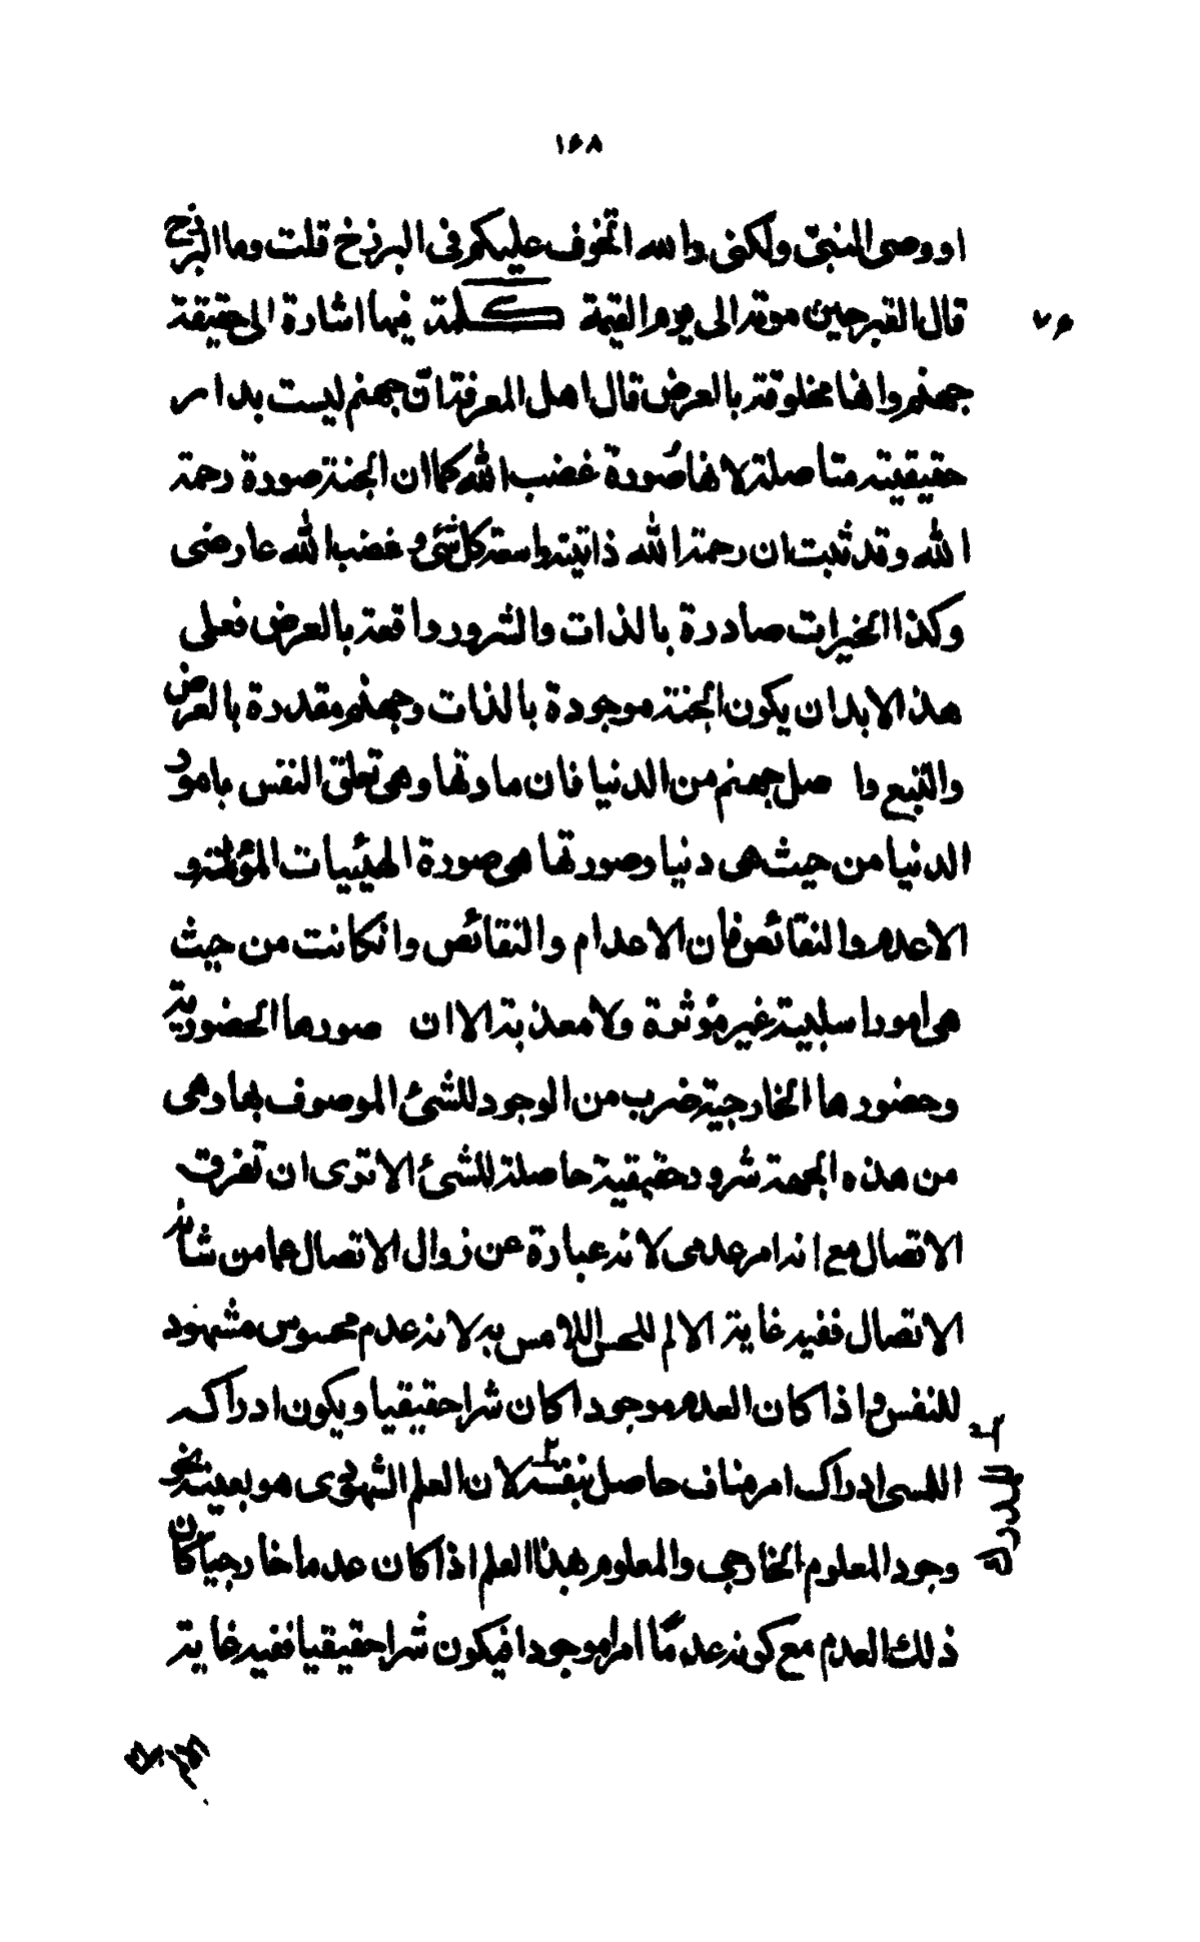 ١۶٨
او وصى النبىّ ولكنى والله اتخوف عليكم فى البرزخ قلت وما البرزخ
قال القبر حين موته الى يوم القيمة كلمة فيها اشارة الى حقيقة
٧۶
جهنم وانها مخلوقة بالعرض قال اهل المعرفة انّ جهنم ليست بدار
حقيقية متاصلة لانها صُورة غضب الله كما ان الجنة صورة رحمة
الله وقد ثبت ان رحمة الله ذاتية واسعة كل شئ و غضب الله عارضى
وكذا الخيرات صادرة بالذات والشرور واقعة بالعرض فعلى
هذا لابد ان يكون الجنة موجودة بالذات وجهنم مقدرة بالعرض
والتبع وا صل جهنم من الدنيا فان مادتها وهى تعلق النفس بامور
الدنيا من حيث هى دنيا وصورتها هى صورة الهيئيات المؤلمة و
الاعدم والنقائص فان الاعدام والنقائص وانكانت من حيث
هى امورا سلبية غير مؤثرة ولا معذبة الا ان صورها الحضورية
وحضورها الخارجية ضرب من الوجود للشئ الموصوف بها وهى
من هذه الجهة شرور حقيقية حاصلة للشئ الا ترى ان تفرق
الاتصال مع انه امر عدمى لانه عبارة عن زوال الاتصال عما من شانه
الاتصال ففيه غاية الالم للحس اللامس به لانه عدم محسوس مشهود
للنفس واذا كان العدم موجودا كان شرا حقيقيا ويكون ادراكه
اللمسى ادراك امر مناف حاصل بنفسه لان العلم الشهودى هو بعينه نحو
وجود المعلوم الخارجى والمعلوم بهذا العلم اذا كان عدما خارجيا كان
ذلك العدم مع كونه عدمًا امرا موجودا فيكون شرا حقيقيا ففيه غاية